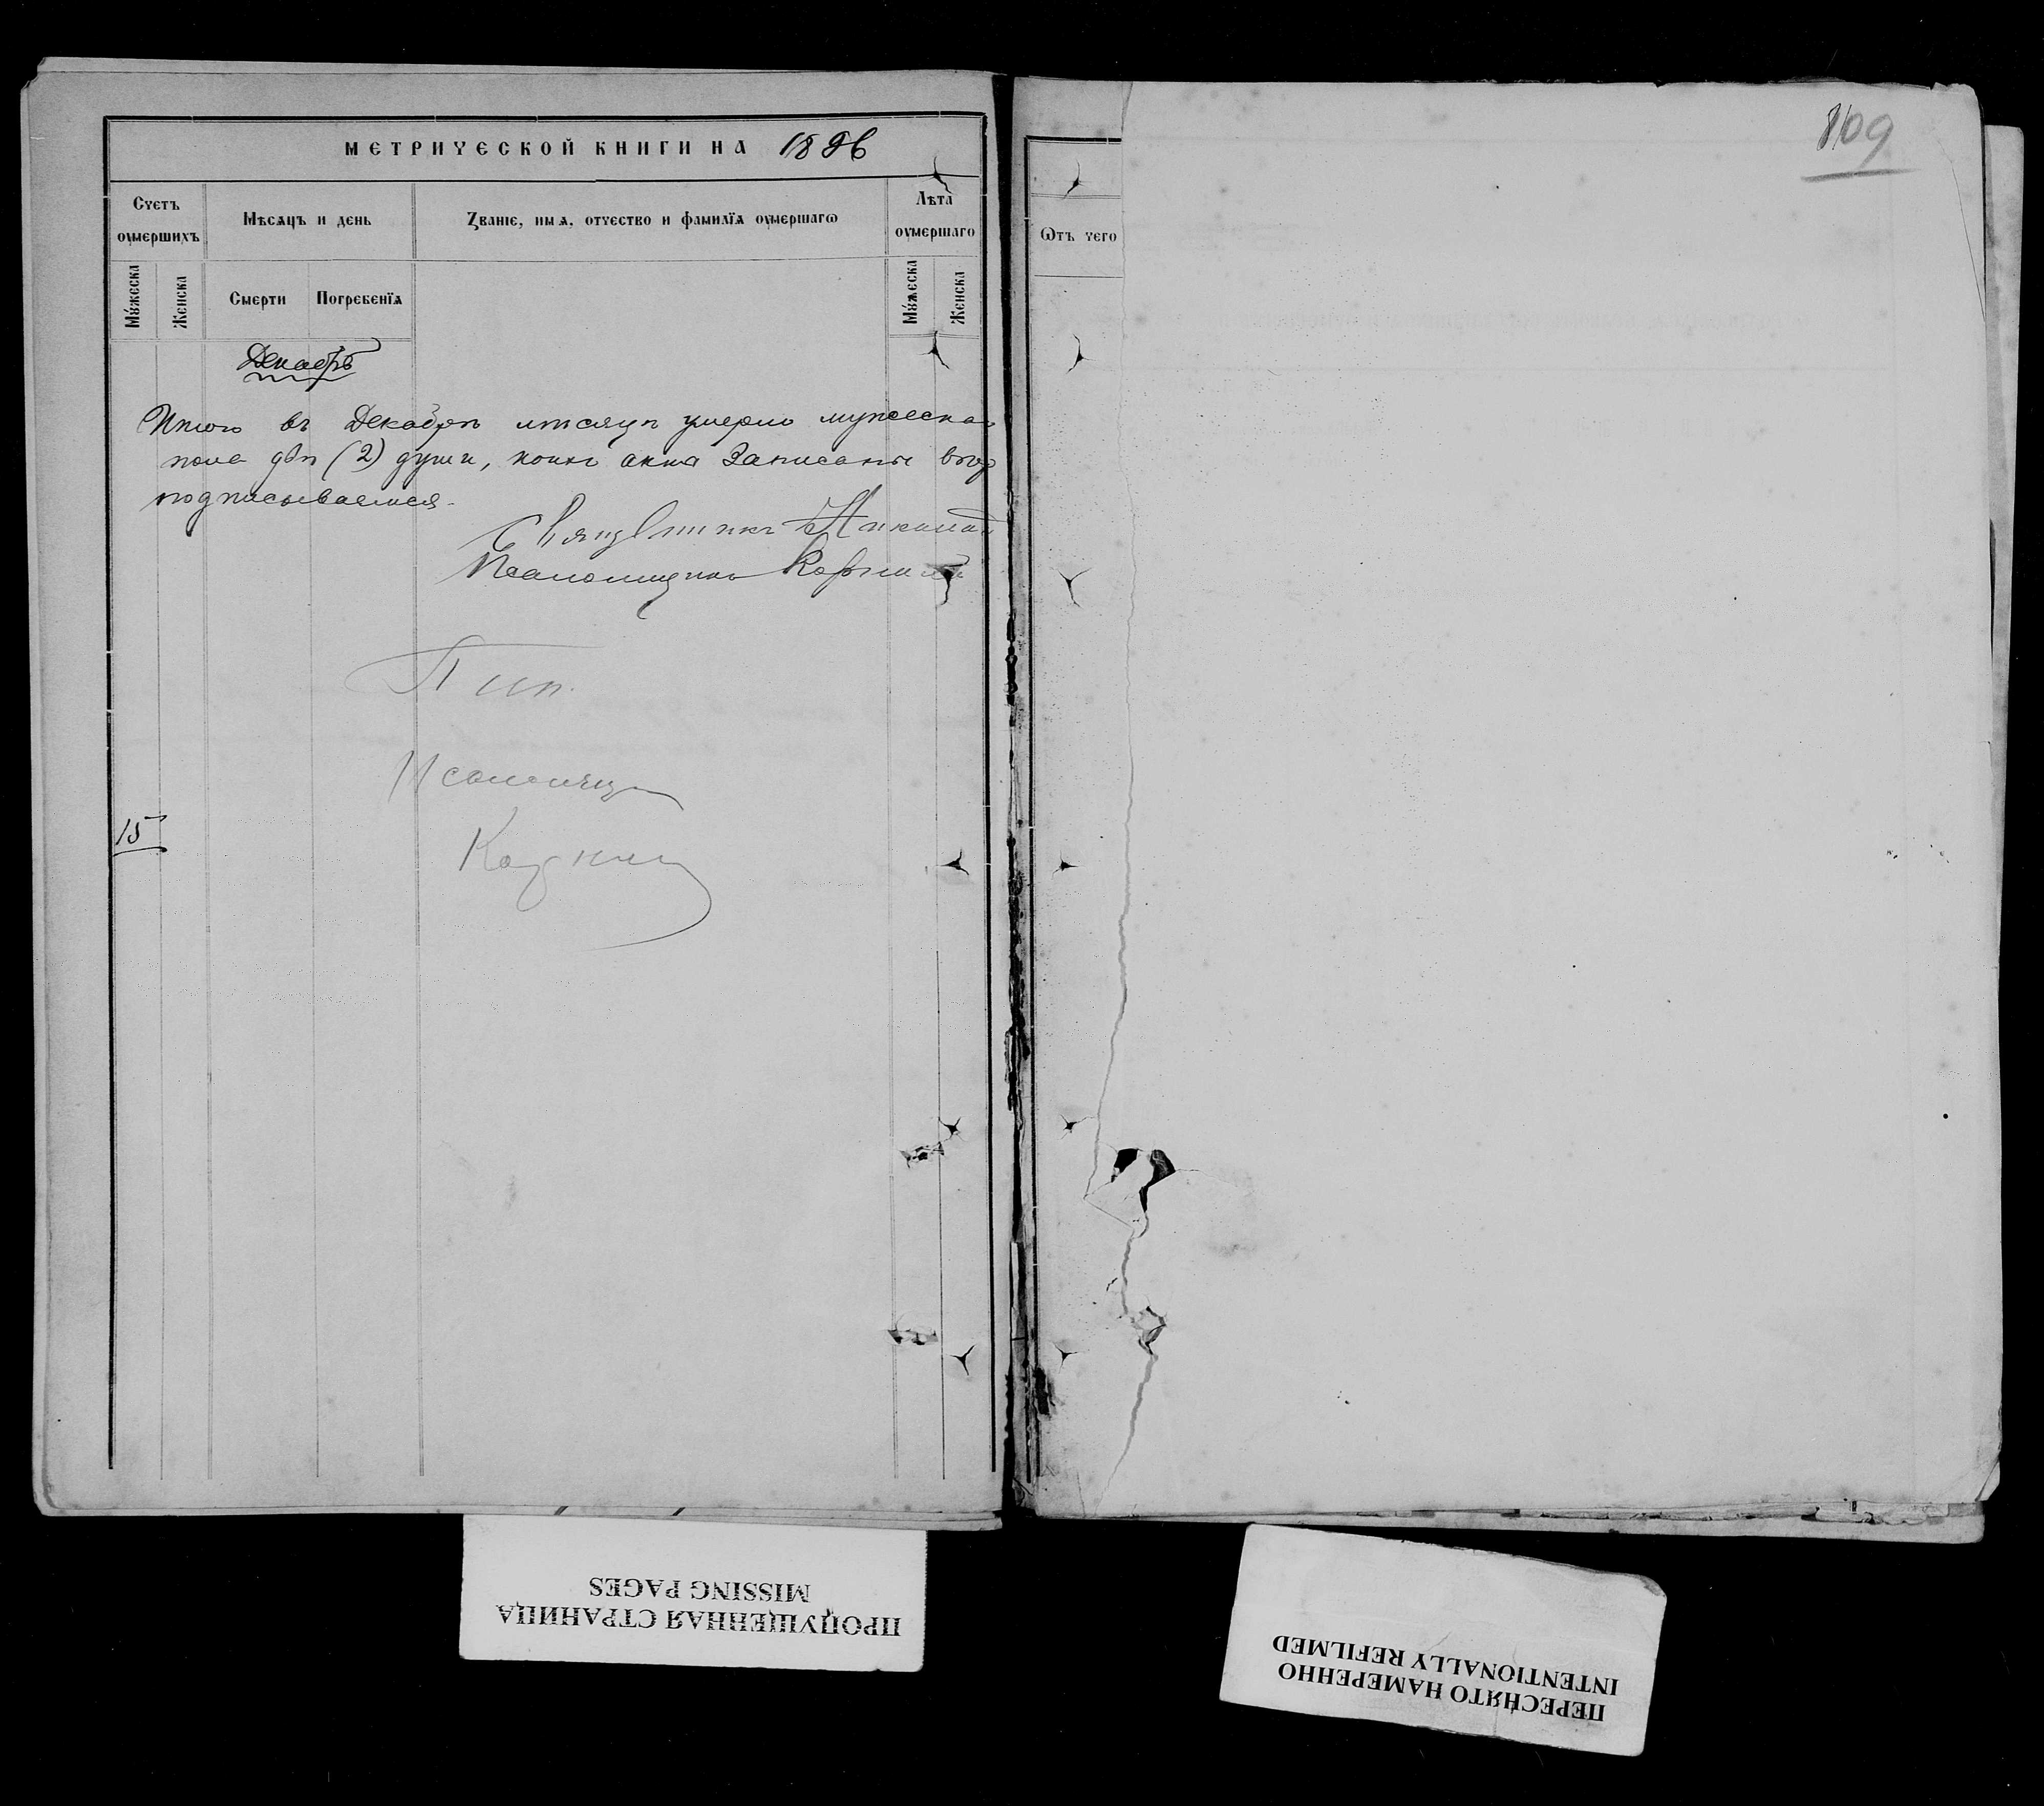 МЕТРИЧЕСКОЙ КНИГИ НА 1896
Счетъ оумершихъ
Мѣсяцъ и день
Званіе, имя, отчество и фамилія оумершагѡ
Лѣта оумершаго
Мужеска
Женска
Смерти
Погребенія
Мужеска
Женска
Декабрь
Итого въ Декабрѣ мѣсяцѣ умерло мужеска
пола двѣ (2) души, коихъ акта записаны
подписываемся.
Священникъ
Псаломщикъ
Псаломщ
15
Ѿтъ чего
109
ПРОПУЩЕННАЯ СТРАНИЦА
MISSING PAGES
ПЕРЕСНЯТО НАМЕРЕННО
INTENTIONALLY REFILMED